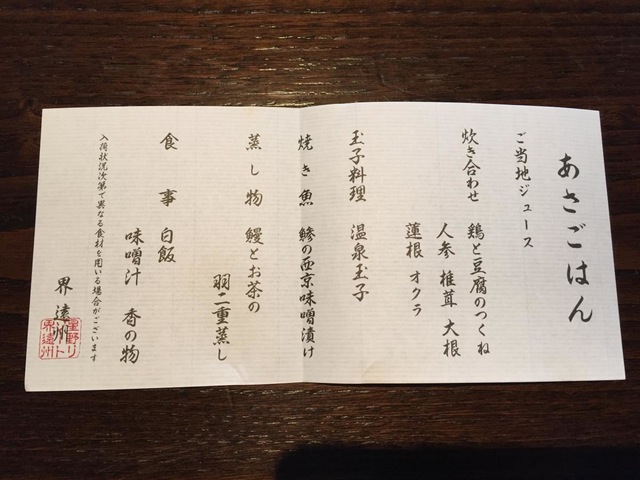 あさごはん
ご当地ジュース
炊き合わせ 鶏と豆腐のつくね
人参 椎茸 大根
蓮根 オクラ
玉子料理 温泉玉子
焼き魚 鯵の西京味噌漬け
蒸し物 鰻とお茶の
羽二重蒸し
食事 白飯
味噌汁 香の物
入荷状況次第で異なる食材を用いる場合がございます
界 遠州
星野リ
ゾート
界遠州